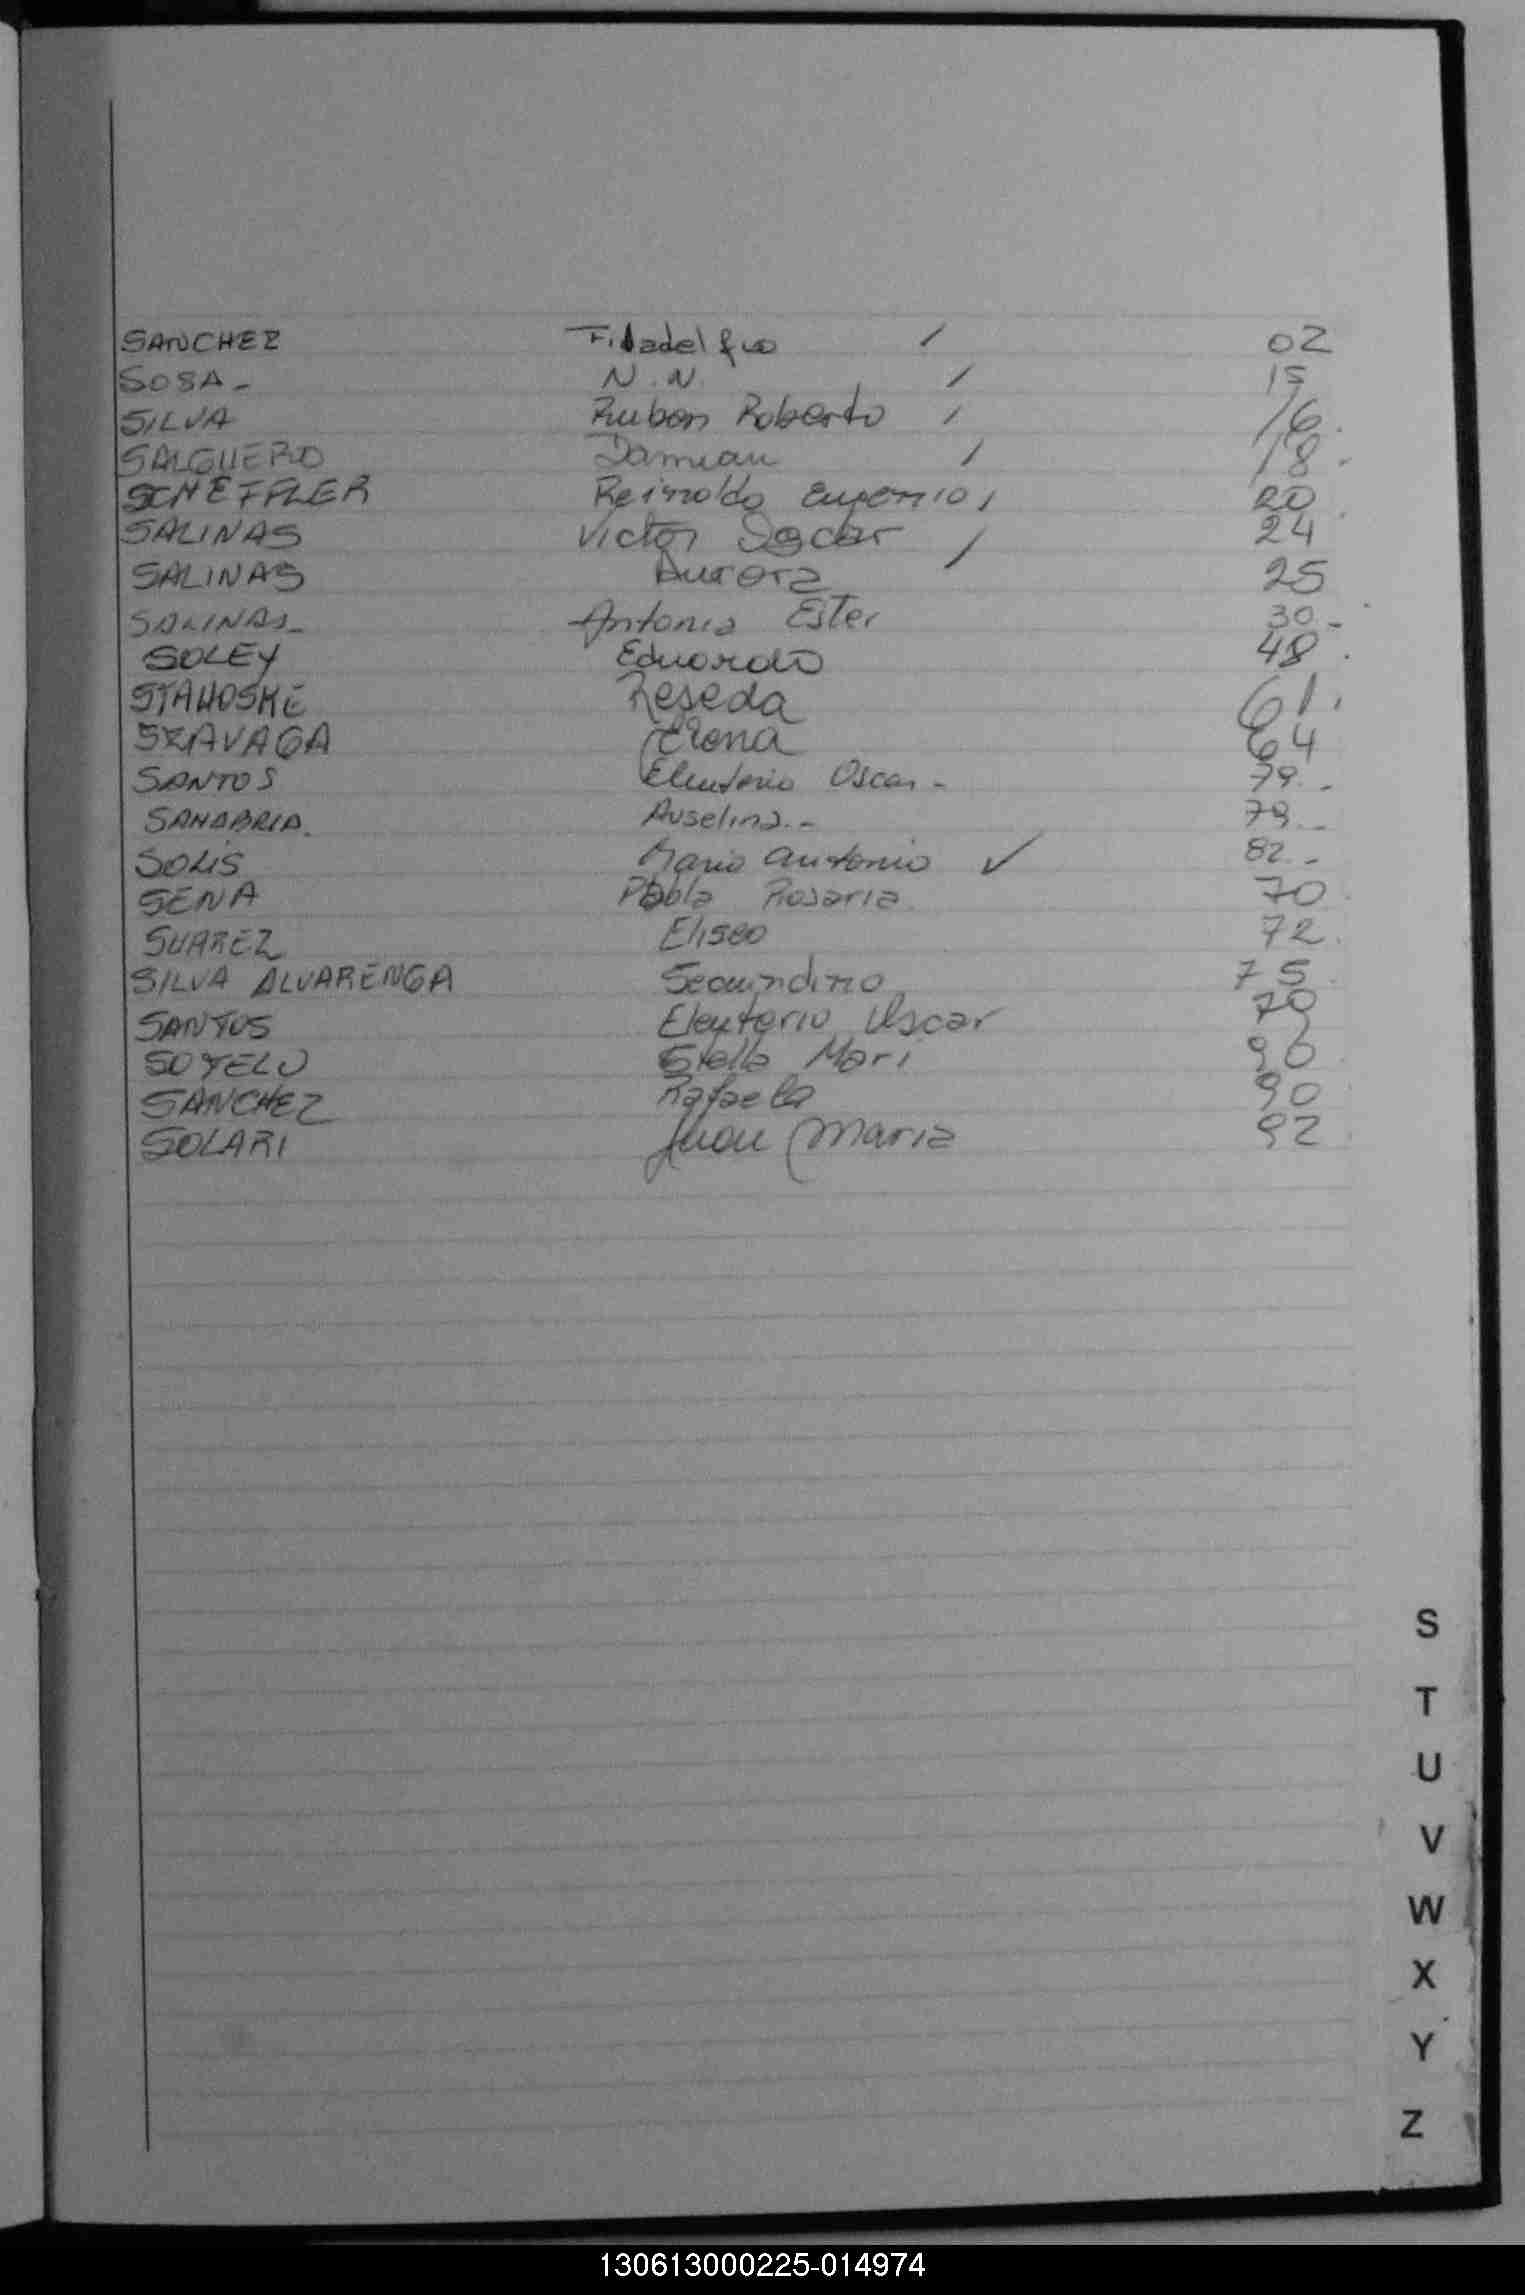 SANCHEZ Filadelfio / 02
SOSA - N.N. / 15
SILVA Ruben Roberto / 16.
SALGUERO Damian / 18.
SCHEFFLER Reinoldo Eugenio / 20
SALINAS Victor Oscar 24
SALINAS Aurora / 25
SALINAS - Antonia Ester 30 -
SOLEY Eduardo 48.
STAHOSKE Reseda 61.
Elena 64
SANTOS Eleuterio Oscar - 79. -
SANABRIA. Auselina. - 79. -
SOLIS Mario Antonio ✓ 82. -
SENA Pabla Rosaria 70.
SUAREZ Eliseo 72.
SILVA ALVARENGA Secundino 75.
SANTOS Eleuterio Oscar 70
SOTELO Stella Mari 90.
SANCHEZ Rafaela 90
SOLARI Juan Maria 92.
S
T
U
V
W
X
Y
Z
130613000225-014974